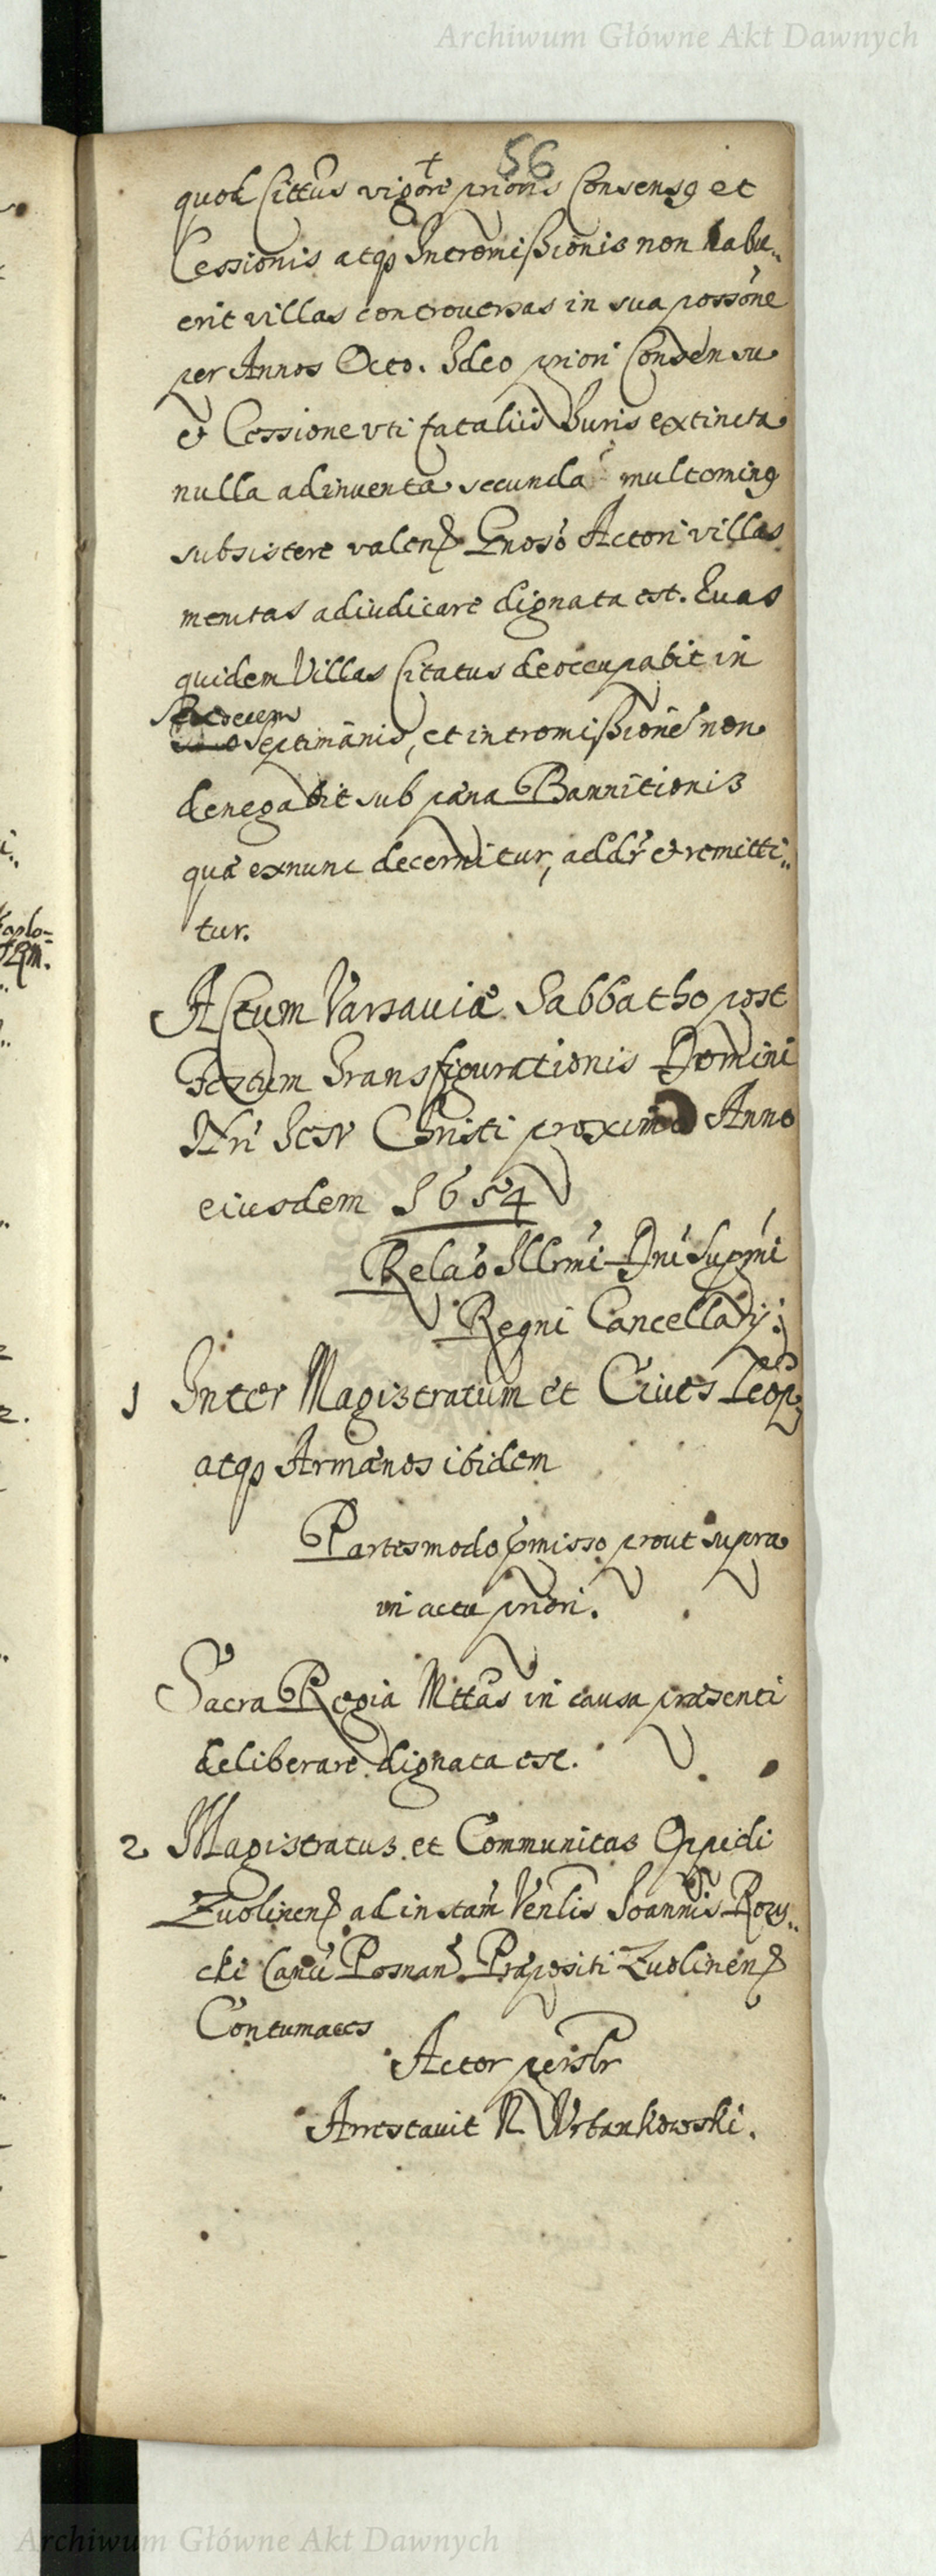 Archiwum Główne Akt Dawnych
56
quod Cittus vigore prioris Consensq et
Cessionis atqp Intromissionis non habu„
erit villas controversas in sua possone
per Annos Octo. Ideo priori Consensu
et Cessione uti fataliis Iuris extincta
nulla adinventa secunda multoming
subsistere valen Gnoso Actori villas
memtas adiudicare dignata est. Quas
quidem Villas Citatus deoccupabit in
Sedecem
Septimanis, et intromissione non
denegabit sub pæna Bannitionis
quæ exnunc decernitur, addr et remitti„
tur.
Actum Varsaviæ Sabbatho post
Festum Transfigurationis Domini
Nri Iesv Christi proximo Anno
eiusdem 1654
Relao Illrmi Dni Supmi
Regni Cancellarij
1 Inter Magistratum et Cives Leop
atqp Armænos ibidem
Partes modo pmisso prout supra
in actu priori.
Sacra Regia Mttas in causa præsenti
deliberare dignata est.
2 Magistratus et Communitas Oppidi
Zvolinen ad instam Venlis Joannis Rozy„
cki Canci Posnan Præpositi Zvolinen
Contumaces
Actor per
Arrestavit N Wrbankowski.
Archiwum Główne Akt Dawnych